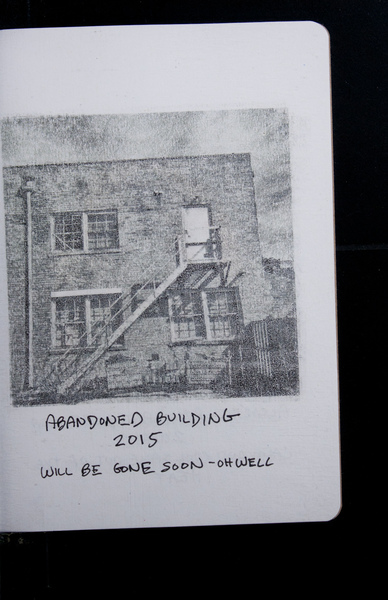 ABANDONED BUILDING
2015
WILL BE GONE SOON - OH WELL